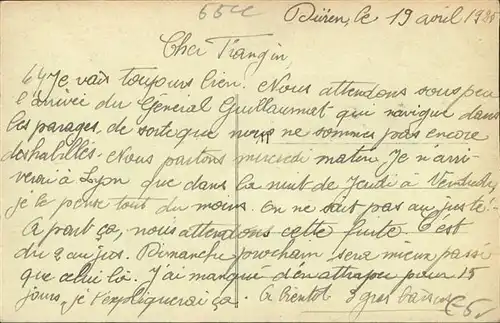 65cc
Düren, le 19 avril 1925
Cher Frangin,
Je vais toujours bien. Nous attendons sous peu
l'arrivée du Général Guillaumat qui navigue dans
les parages, de sorte que nous ne sommes pas encore
déshabillés. Nous partons mercredi matin. Je n'arri-
verai à Lyon que dans la nuit de Jeudi à Vendredi,
je le pense tout du moins. On ne sait pas au juste!
A part ça, nous attendons cette fuite. C'est
du 2 au jus. Dimanche prochain sera mieux passé
que celui là. J'ai manqué d'en attraper pour 15
jours, je t'expliquerai ça. A bientôt 3 gros baisers